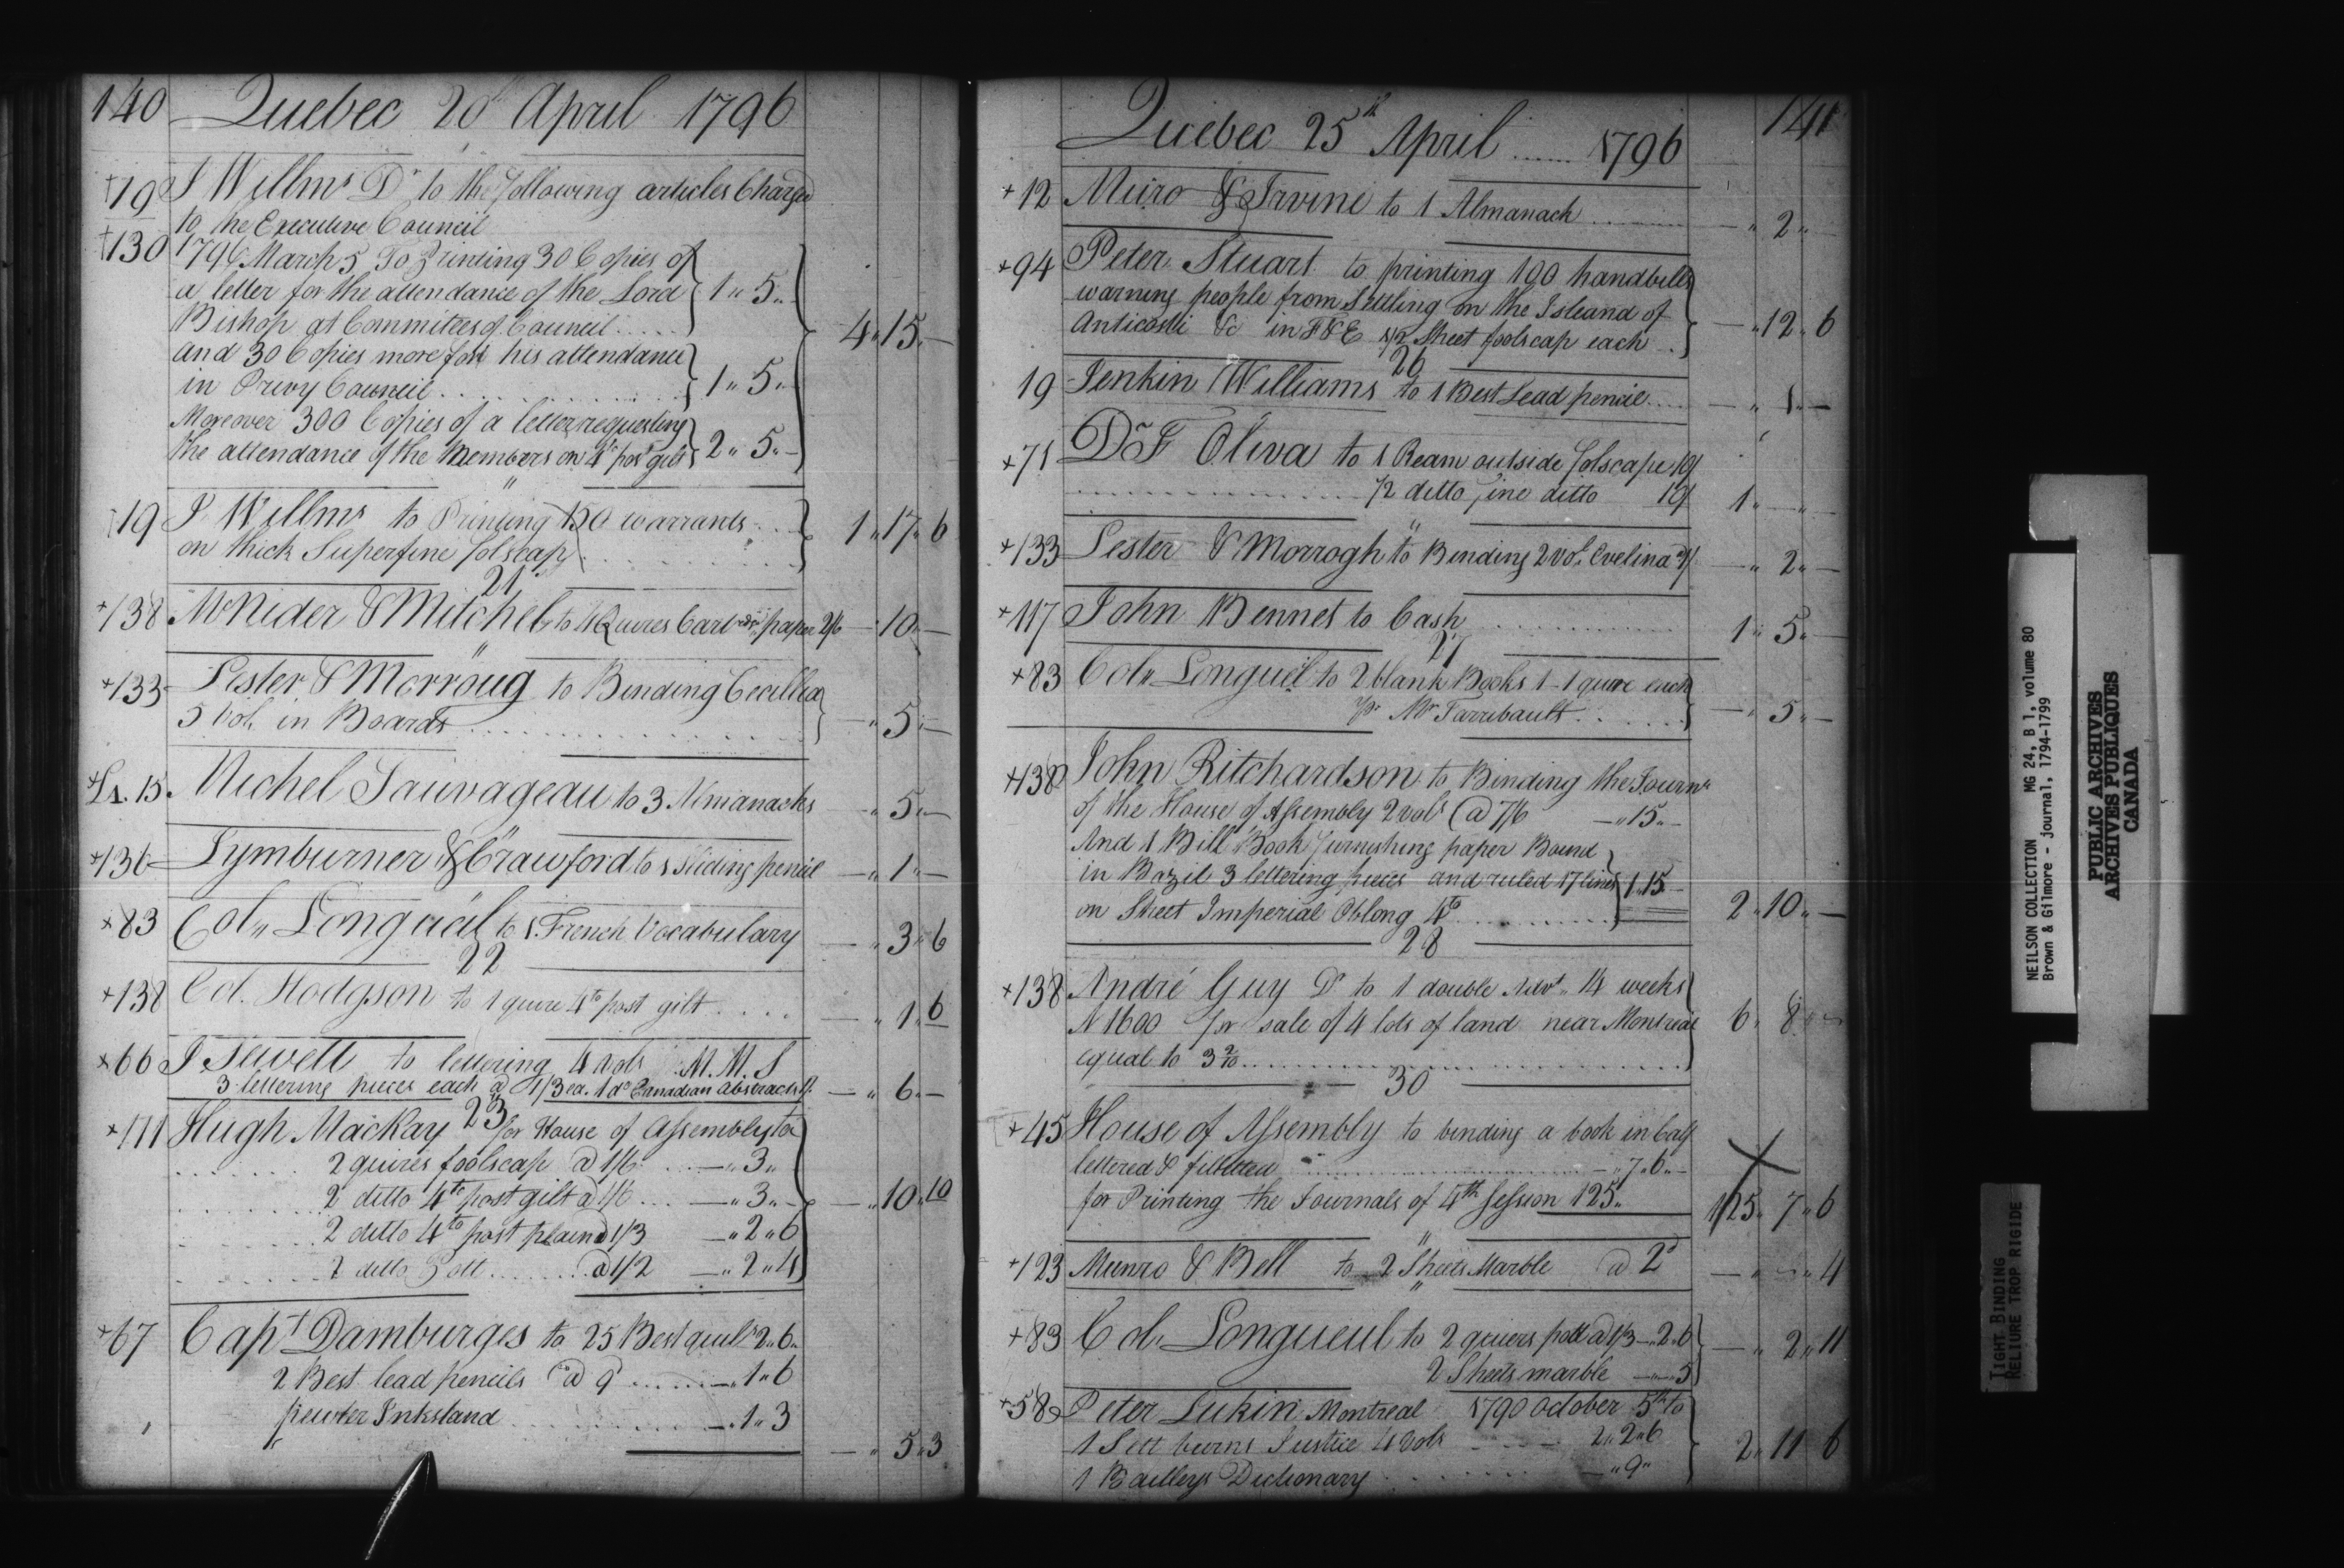 140 Quebec 20th April 1796
+19 J Willms Dr to the following articles Charged
to the Executive Council
+130 1796 March 5 To Printing 30 Copies of
a letter for the attendance of the Lord 1 " 5 "
Bishop at Commitees of Council .....
and 30 Copies more for his attendance 4 " 15 " —
in Privy Council .......... 1 " 5 "
Moreover 300 Copies of a letter requesting
the attendance of the Members on 4to post gilt 2 " 5 " —
"
+19 J Willms to Printing 150 warrants ... 1 " 17 " 6
on thick Superfine folscap
21
+138 McNider & Mitchel to 4 Quires Cartridge paper 2/6 — " 10 " —
"
+133 Lester & Morroug to Binding Cecillia
5 Vol. in Boards ............ — " 5 " —
15 Michel Sauvageau to 3 Almanacks — " 5 " —
"
+136 Lymburner & Crawford to 1 Sliding pencil — " 1 " —
+83 Col. Longuäl to 1 French Vocabulary — " 3 " 6
22
+138 Col. Hodgson to 1 quire 4to post gilt .... — " 1 " 6
+66 J Sewell to lettering 4 Vols M.M.S
3 lettering pieces each a 1/3 ea. 1 do Canadian abstracts 1/. — " 6 " —
23
+111 Hugh MacKay for House of Assembly to
2 quires foolscap @ 1/6 .... — " 3 "
2 ditto 4to post gilt a 1/6 .... — " 3 " — — " 10 " 10
2 ditto 4to post plain @ 1/3 — " 2 " 6
2 ditto Pott ........ @ 1/2 — " 2 " 4
+67 Capt Damburges to 25 Best quils 2 " 6 "
2 Best lead pencils @ 9 ...... — " 1 " 6
pewter Inkstand ............ — " 1 " 3
— " 5 " 3
Quebec 25th April ...... 1796 141
+12 Muro & Irvine to 1 Almanach ........ — " 2 " —
+94 Peter Stuart to printing 100 handbills
warning people from Settling on the Island of
Anticosti &c in F&E 1/2 Sheet foolscap each .. — " 12 " 6
26
19 Jenkin Williams to 1 Best Lead pencil .... — " 1 " —
+71 Dr F Oliva to 1 Ream outside folscape 10/
............ 1/2 ditto fine ditto 10/ 1 " — " —
"
+133 Lester & Morrogh to Binding 2 vol. Evelina @ 1/ — " 2 " —
+117 John Bennet to Cash .............. 1 " 5 " —
27
+83 Col. Longueil to 2 blank Books 1-1 quire each
pr Mr Tarribault ...... — " 5 " —
+138 John Ritchardson to Binding the Journs
of the House of Assembly 2 vols @ 7/6 — " 15 " —
And 1 Bill Book furnishing paper Bound
in Bazil 3 lettering pieces and ruled 17 lines 1 " 15 —
on Sheet Imperial Oblong 4to .......... 2 " 10 " —
28
+138 André Guy Dr to 1 double Advt " 14 weeks
N 1600 for sale of 4 lots of land near Montreal 6 " 8 " —
equal to 3 2/10 ..............
30
+45 House of Assembly to binding a book in Calf
lettered & filletted ............ — " 7 " 6 " —
for Printing the Journals of 4th Session 125 " 125 " 7 " 6
"
+123 Munro & Bell to 2 Sheets Marble @ 2d — " — " 4
"
+83 Col. Longueul to 2 quiers pott @ 1/3 — " 2 " 6
2 Sheets marble — " — 5 — " 2 " 11
+58 Peter Lukin Montreal 1790 October 5th to
1 Sett burns Justice 4 Vols ...... 2 " 2 " 6 2 " 11 " 6
1 Baileys Dictionary ........ — " 9 "
NEILSON COLLECTION MG 24, B 1, volume 80
Brown & Gilmore - journal, 1794-1799
PUBLIC ARCHIVES
ARCHIVES PUBLIQUES
CANADA
TIGHT BINDING
RELIURE TROP RIGIDE